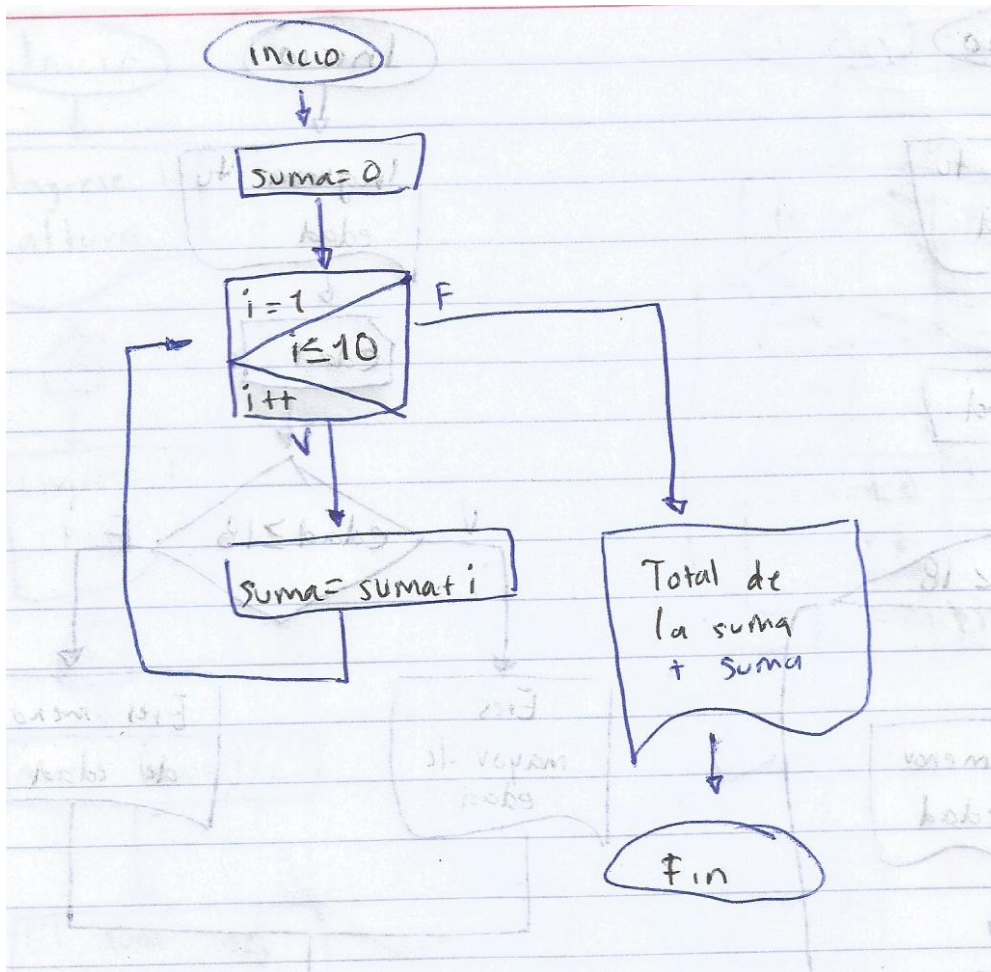 inicio
suma=0
i=1
F
i≤10
i++
V
suma= suma+ i
Total de
la suma
+ suma
Fin